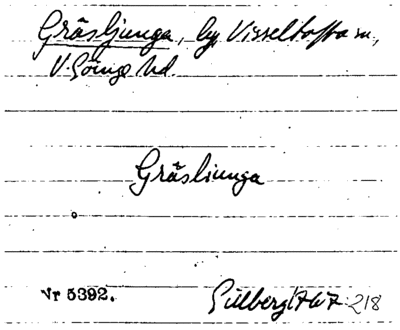 Gräsljunga, by, Visseltofta sn,
V. Göinge hd.
Gräsliunga
Nr 5392. Gillberg 1767 218